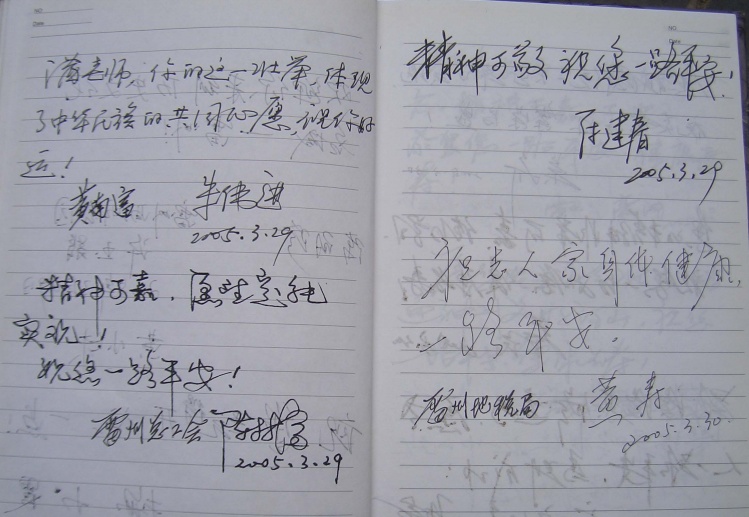 老师，你的这一壮举，体现
了中华民族的共同心愿，祝你好
运！
黄南富 朱伟进
2005.3.29
精神可嘉，愿望定能
实现！
祝您一路平安！
雷州总工会
2005.3.29
精神可敬 祝您一路平安！
陈建春
2005.3.29
祝老人家身体健康，
一路平安．
雷州地税局 黄寿
2005.3.30.